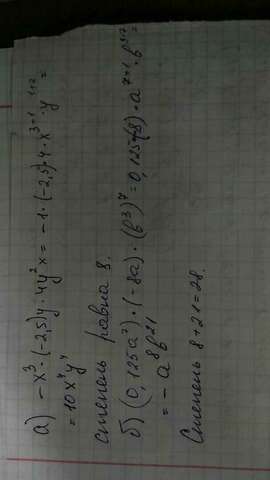 а) -x³·(-2,5)y·4y²x = -1·(-2,5)·4·x³⁺¹·y¹⁺² =
= 10x⁴y⁴
степень равна 8.
б) (0,125a⁷)·(-8a)·(b³)⁷ = 0,125·(-8)·a⁷⁺¹·b³˙⁷ =
= -a⁸b²¹
Степень 8+21=28.